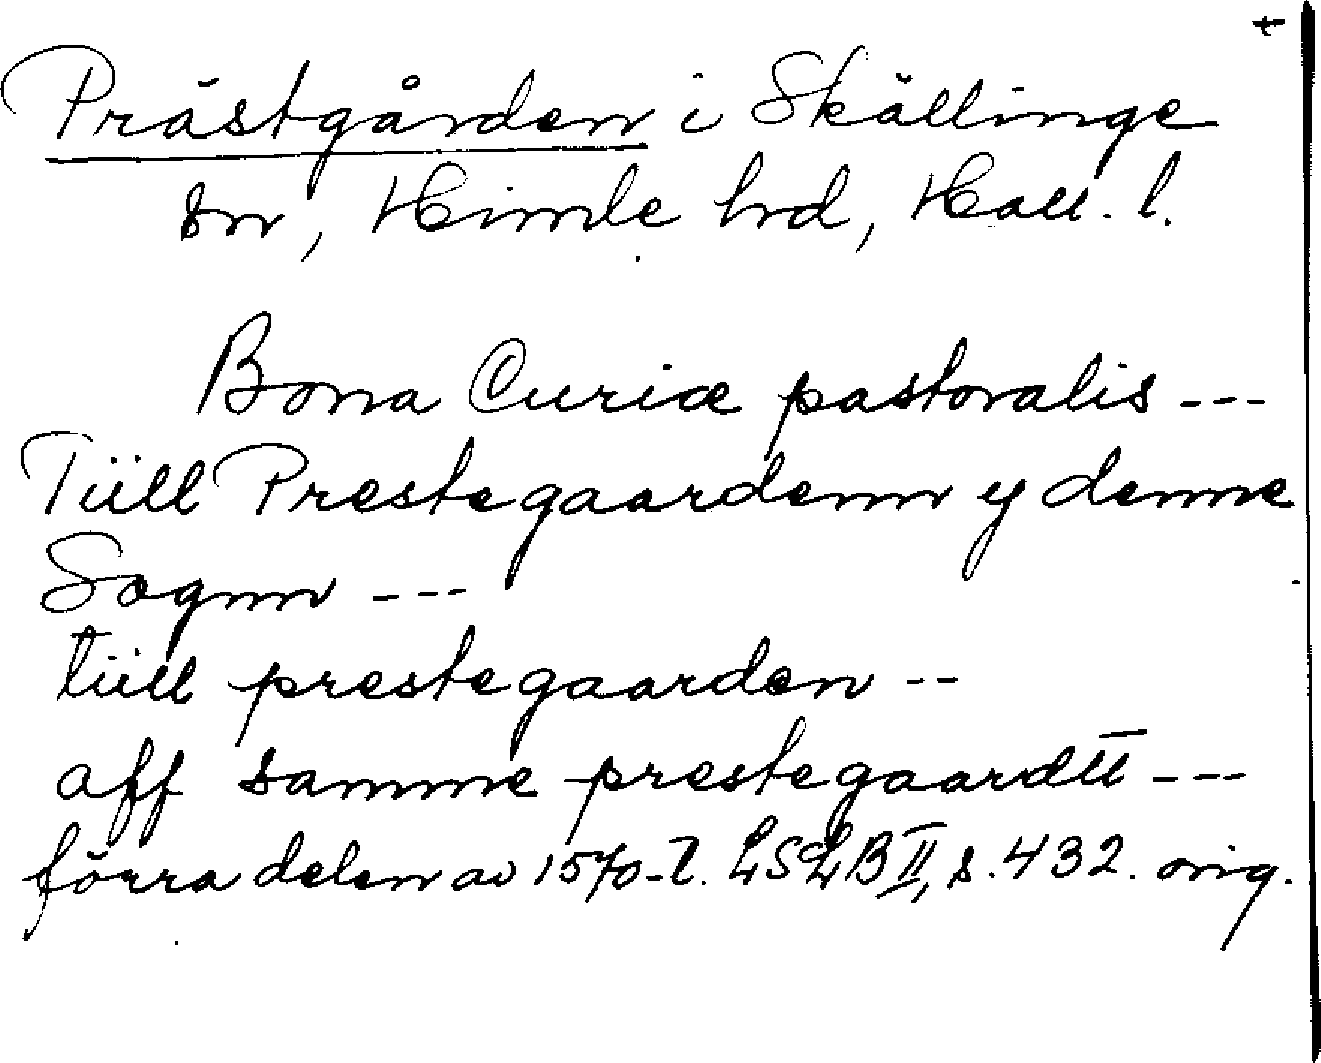 t
Prästgården i Skällinge
sn, Himle hrd, Hall. l.
Bona Curiæ pastoralis ---
Tiill Prestegaardenn y denne
Sognn ---
tiill prestegaarden --
aff samme prestegaardtt ---
förra delen av 1570-t. LSLB II, s. 432. orig.